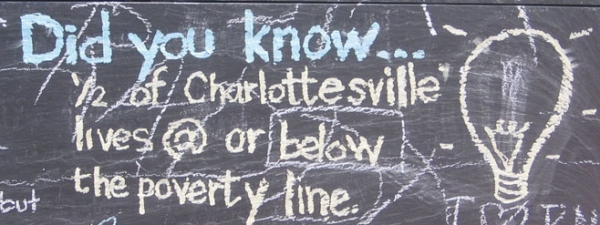 Did you know...
½ of Charlottesville
lives @ or below
the poverty line.
but